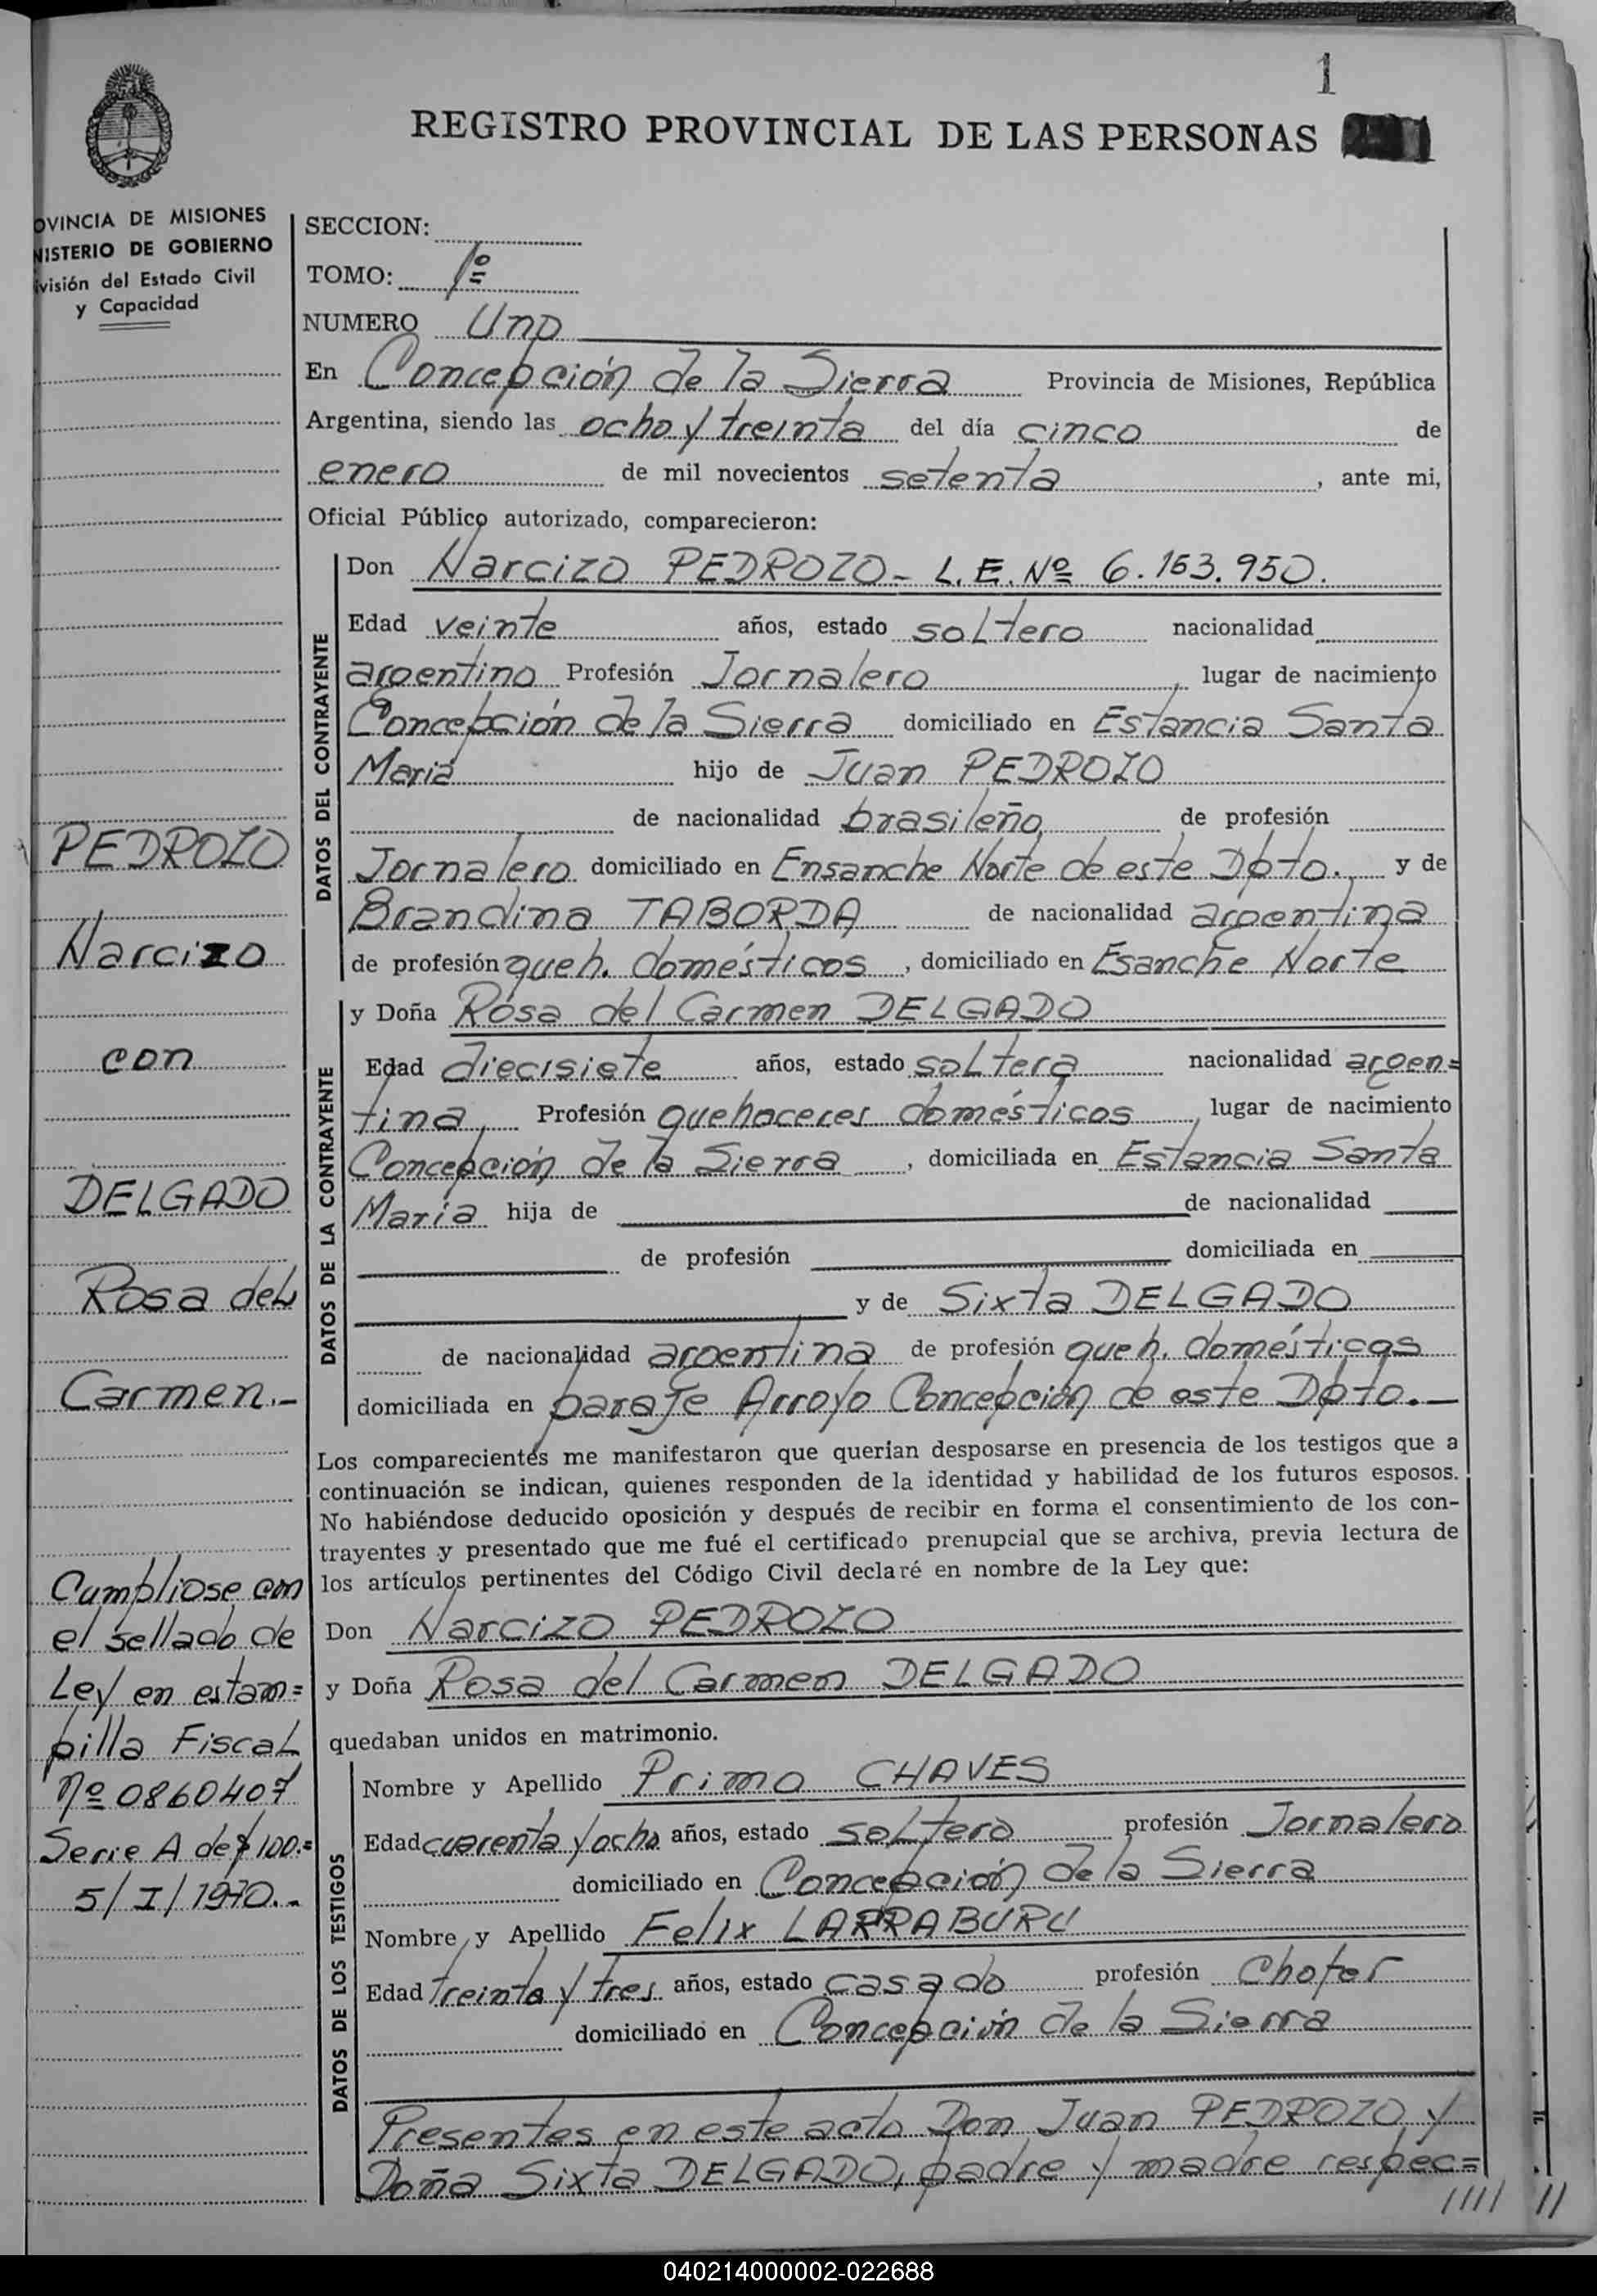 1
REGISTRO PROVINCIAL DE LAS PERSONAS
OVINCIA DE MISIONES
NISTERIO DE GOBIERNO
ivisión del Estado Civil
y Capacidad
SECCION:
TOMO: 1º
NUMERO Uno
En Concepción de la Sierra Provincia de Misiones, República
Argentina, siendo las ocho y treinta del día cinco de
enero de mil novecientos setenta, ante mi,
Oficial Público autorizado, comparecieron:
DATOS DEL CONTRAYENTE
Don Narcizo PEDROZO- L.E. Nº 6.163.950.
Edad veinte años, estado soltero nacionalidad
argentino Profesión Jornalero, lugar de nacimiento
Concepción de la Sierra domiciliado en Estancia Santa
María hijo de Juan PEDROZO
de nacionalidad brasileño de profesión
Jornalero domiciliado en Ensanche Norte de este Dpto., y de
Brandina TABORDA de nacionalidad argentina
de profesión queh. domésticos, domiciliado en Esanche Norte
DATOS DE LA CONTRAYENTE
y Doña Rosa del Carmen DELGADO
Edad diecisiete años, estado soltera nacionalidad argen=
tina, Profesión quehaceres domésticos, lugar de nacimiento
Concepción de la Sierra, domiciliada en Estancia Santa
María hija de de nacionalidad
de profesión domiciliada en
y de Sixta DELGADO
de nacionalidad argentina de profesión queh. domésticos
domiciliada en paraje Arroyo Concepción de este Dpto.-
Los comparecientes me manifestaron que querían desposarse en presencia de los testigos que a
continuación se indican, quienes responden de la identidad y habilidad de los futuros esposos.
No habiéndose deducido oposición y después de recibir en forma el consentimiento de los con-
trayentes y presentado que me fué el certificado prenupcial que se archiva, previa lectura de
los artículos pertinentes del Código Civil declaré en nombre de la Ley que:
Don Narcizo PEDROZO
y Doña Rosa del Carmen DELGADO
quedaban unidos en matrimonio.
DATOS DE LOS TESTIGOS
Nombre y Apellido Primo CHAVES
Edad cuarenta y ocho años, estado soltero profesión Jornalero
domiciliado en Concepción de la Sierra
Nombre y Apellido Felix LARRABURU
Edad treinta y tres años, estado casado profesión Chofer
domiciliado en Concepción de la Sierra
Presentes en este acto Don Juan PEDROZO y
Doña Sixta DELGADO, padre y madre respec=
//// //
PEDROZO
Narcizo
con
DELGADO
Rosa del
Carmen.-
Cumpliose con
el sellado de
Ley en estam=
pilla Fiscal
Nº 0860407
Serie A de $ 100.=
5/I/1970.-
040214000002-022688